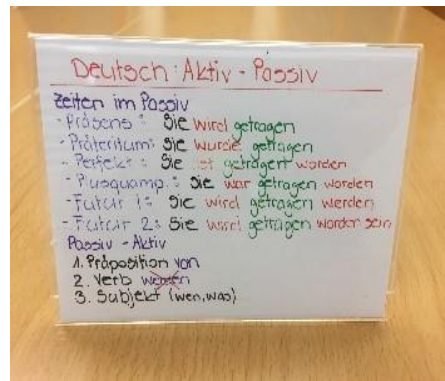 Deutsch: Aktiv - Passiv
Zeiten im Passiv
- Präsens: Sie wird getragen
- Präteritum: Sie wurde getragen
- Perfekt: Sie ist getragen worden
- Plusquamp.: Sie war getragen worden
- Futur 1: Sie wird getragen werden
- Futur 2: Sie wird getragen worden sein
Passiv - Aktiv
1. Präposition von
2. Verb werden
3. Subjekt (wen, was)